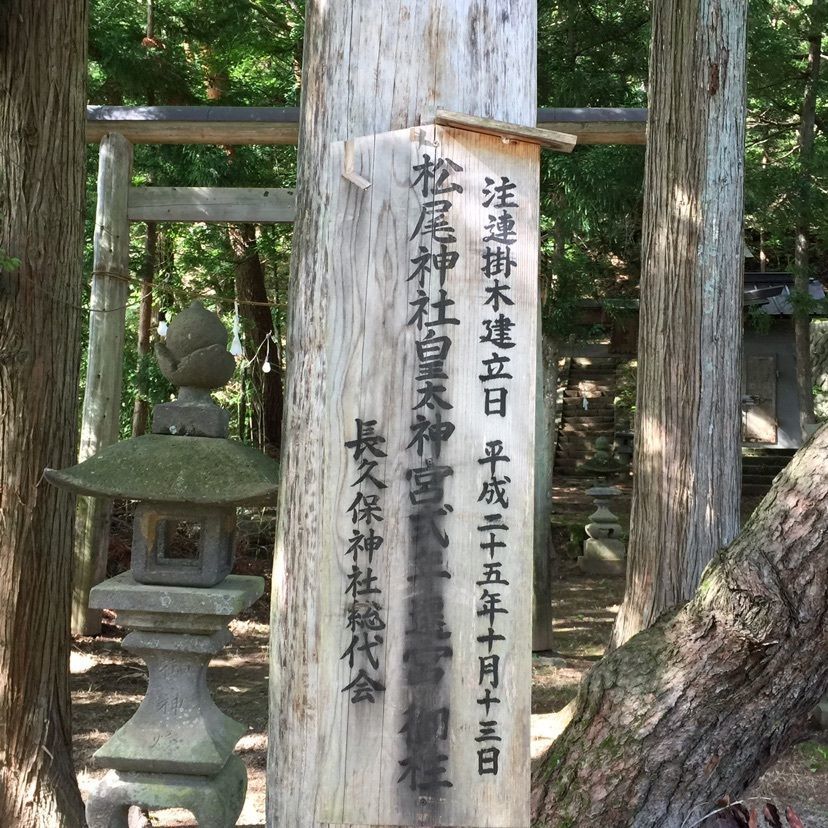 注連掛木建立日 平成二十五年十月十三日
松尾神社皇太神宮式年遷宮御柱
長久保神社総代会